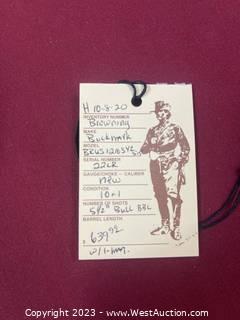 H 10-8-20
INVENTORY NUMBER
Browning
MAKE
Buckmark
MODEL
SERIAL NUMBER
22LR
GAUGE/CHOKE - CALIBER
New
CONDITION
10+1
NUMBER OF SHOTS
5½" Bull BBL
BARREL LENGTH
$ 639.92
w/1-mag.
Copyright 2023 - WestAuction.com